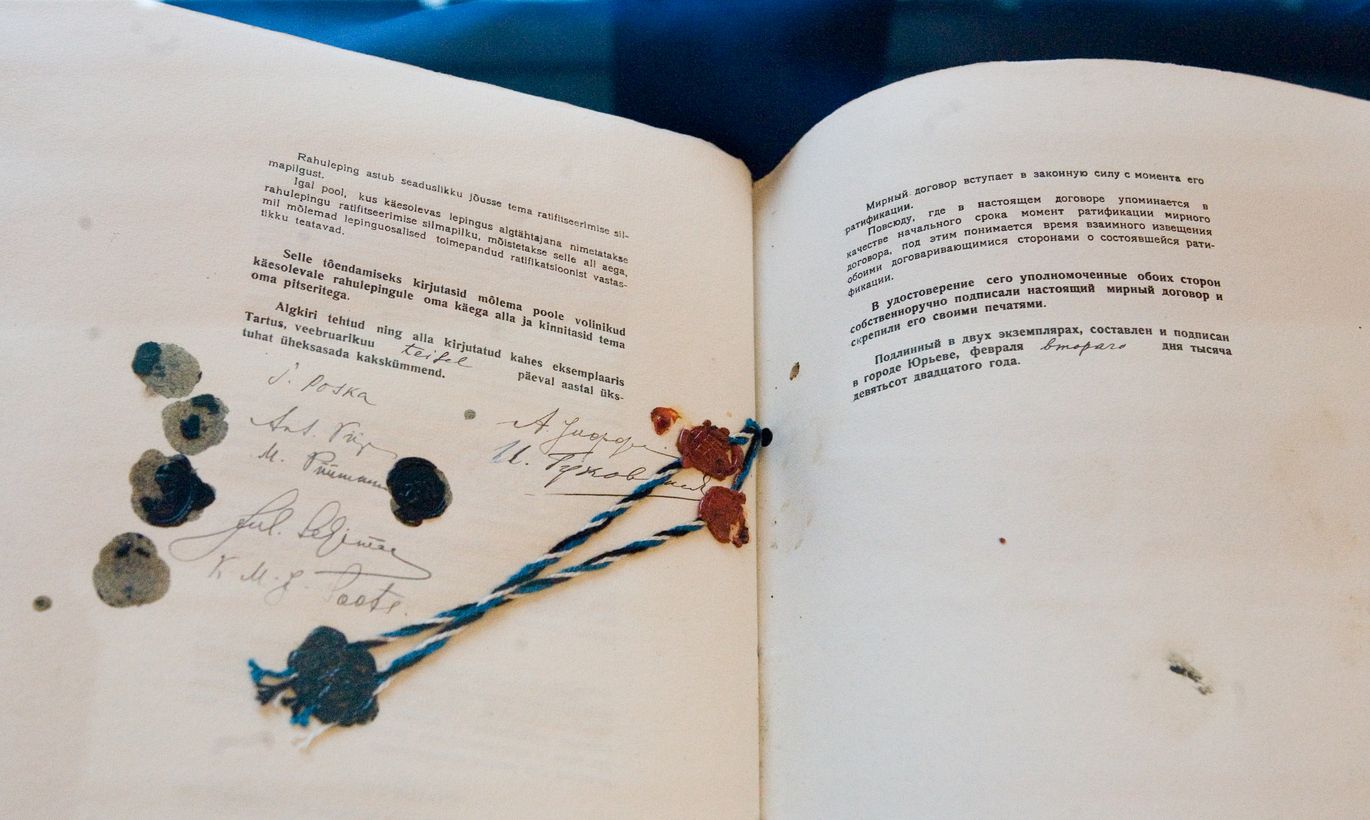 Rahuleping astub seaduslikku jõusse tema ratifitseerimise sil-
mapilgust.
Igal pool, kus käesolevas lepingus algtähtajana nimetatakse
rahulepingu ratifitseerimise silmapilku, mõistetakse selle all aega,
mil mõlemad lepinguosalised toimepandud ratifikatsioonist vastas-
tikku teatavad.
Selle tõendamiseks kirjutasid mõlema poole volinikud
käesolevale rahulepingule oma käega alla ja kinnitasid tema
oma pitseritega.
Algkiri tehtud ning alla kirjutatud kahes eksemplaaris
Tartus, veebruarikuu teisel päeval aastal üks-
tuhat üheksasada kakskümmend.
J. Poska
Ant. Piip
M. Püümann
Jul. Seljamaa
K. M. J. Soots.
А. Иоффе.
И. Гуковский
Мирный договор вступает в законную силу с момента его
ратификации.
Повсюду, где в настоящем договоре упоминается в
качестве начального срока момент ратификации мирного
договора, под этим понимается время взаимного извещения
обоими договаривающимися сторонами о состоявшейся рати-
фикации.
В удостоверение сего уполномоченные обоих сторон
собственноручно подписали настоящий мирный договор и
скрепили его своими печатями.
Подлинный в двух экземплярах, составлен и подписан
в городе Юрьеве, февраля второго дня тысяча
девятьсот двадцатого года.